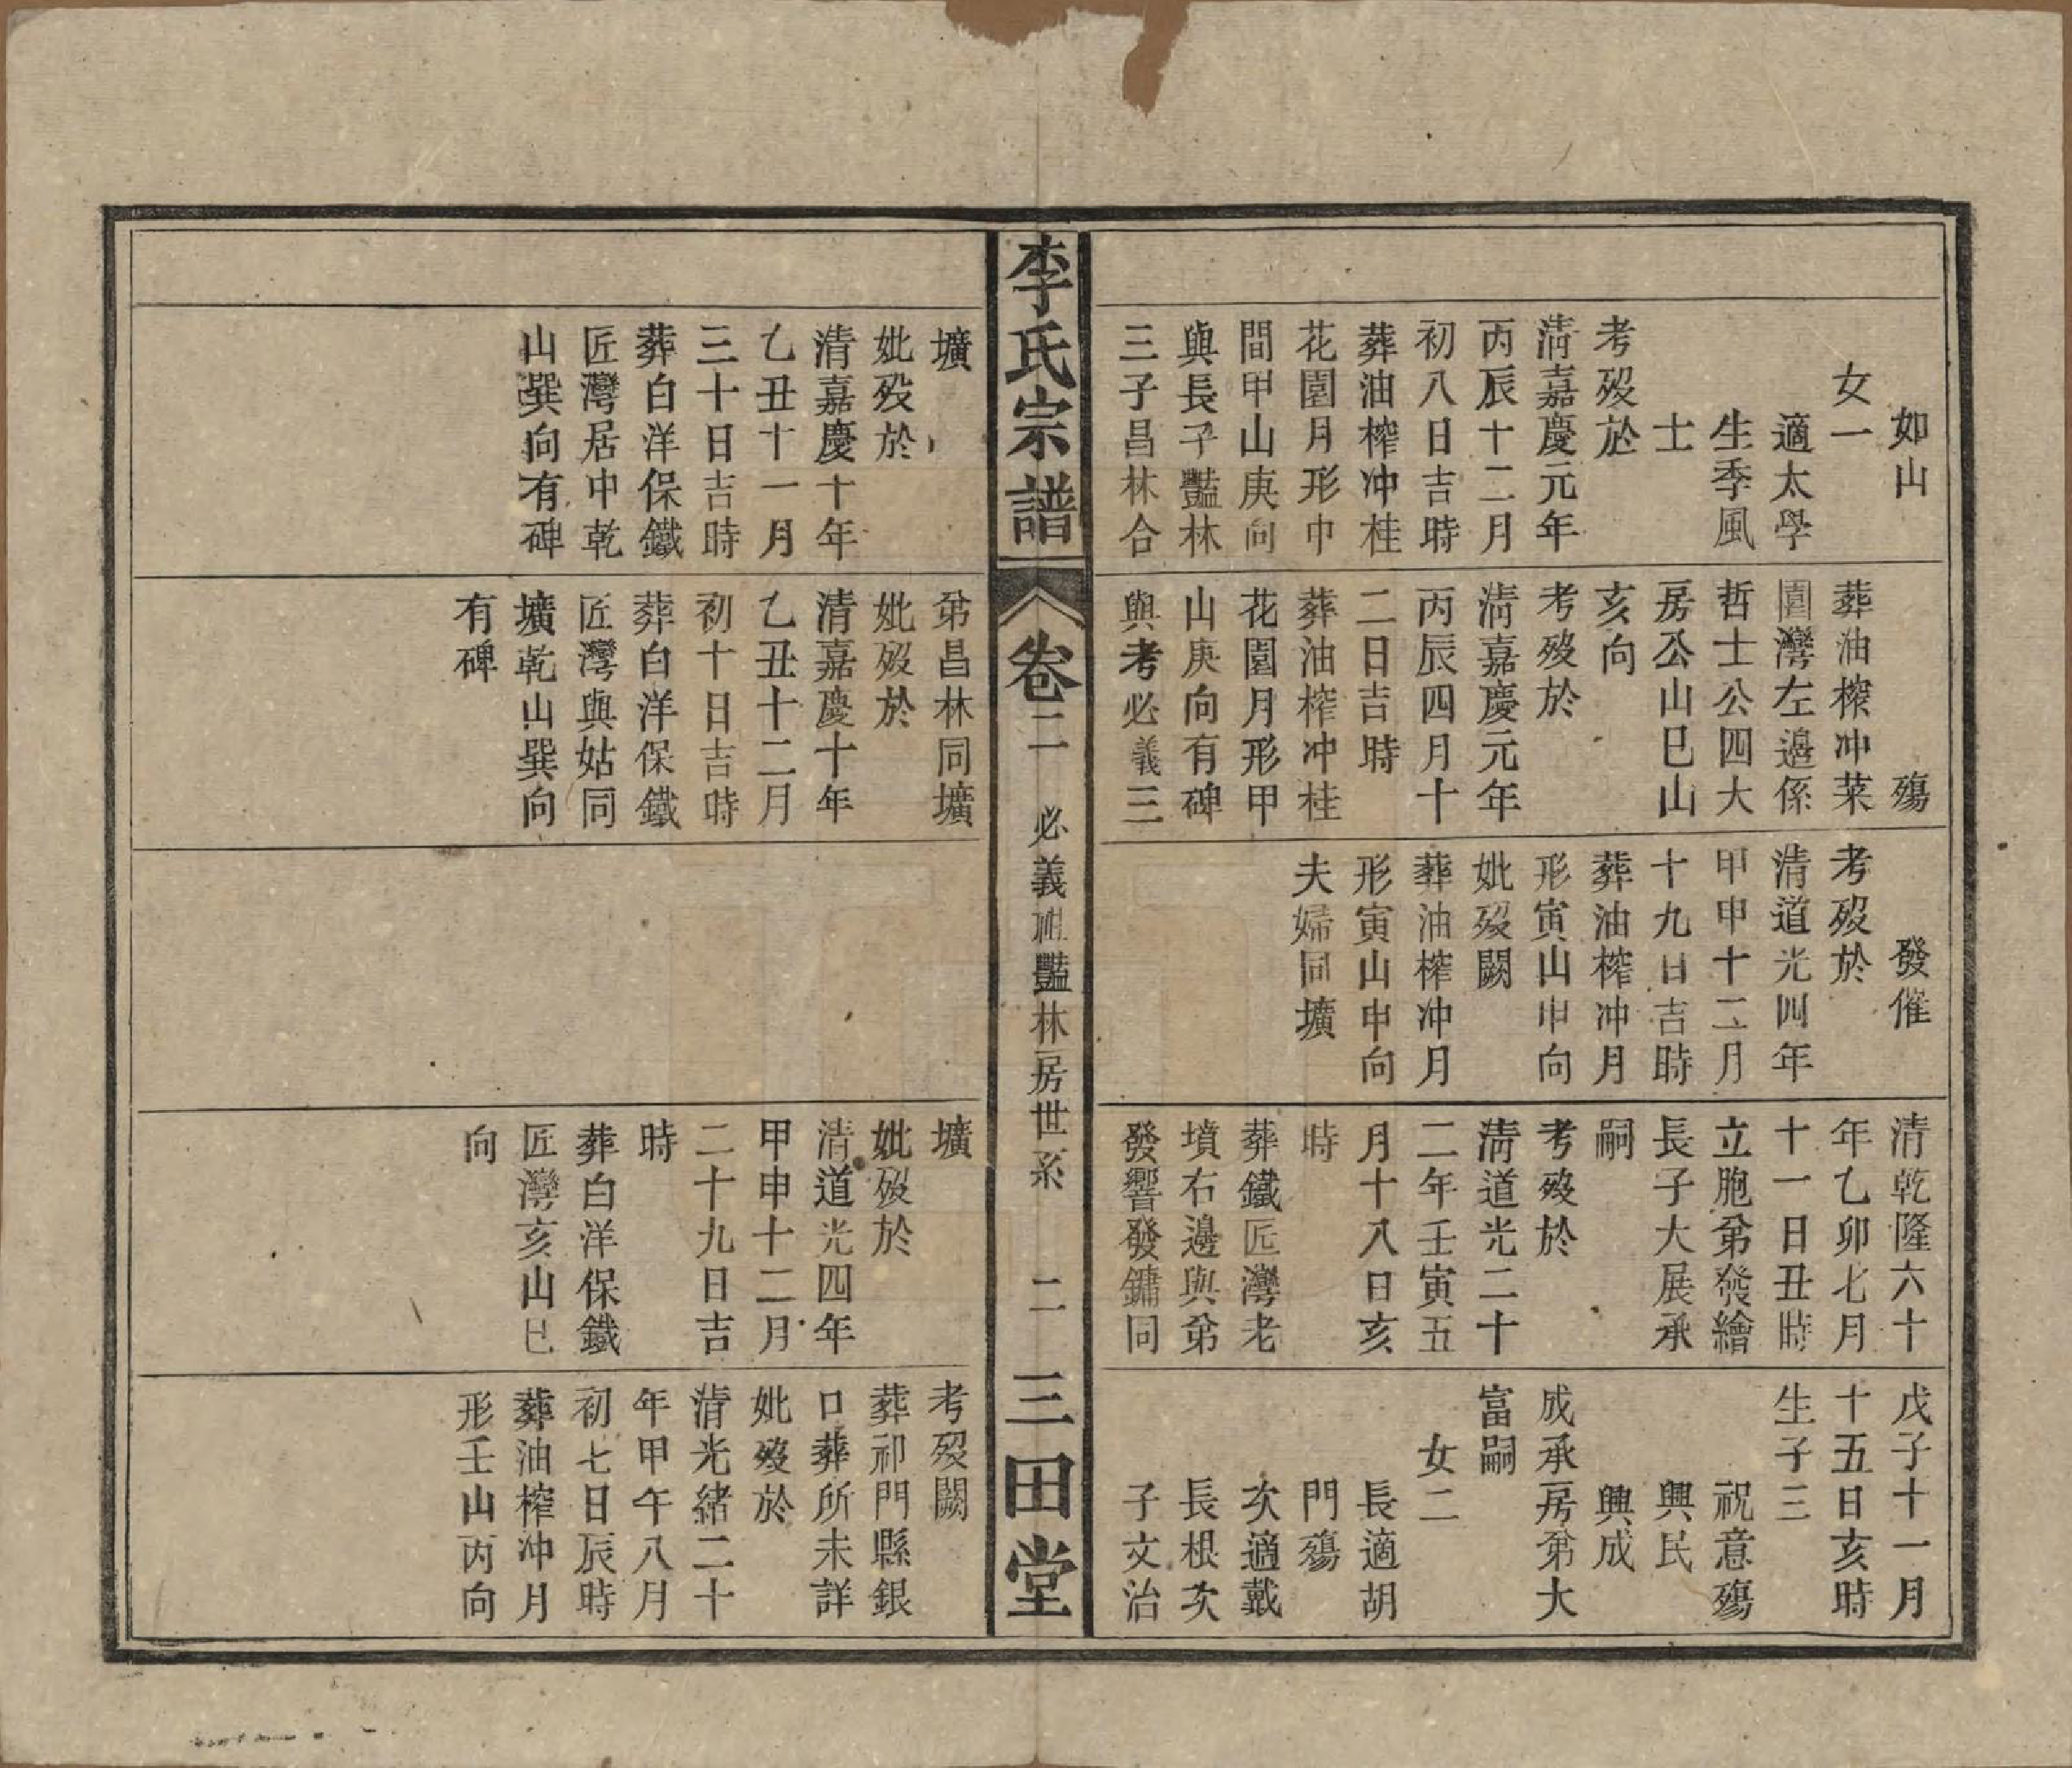 如山
女一
適太學
生季風
士
考歿於
淸嘉慶元年
丙辰十二月
初八日吉時
葬油榨冲桂
花園月形中
間甲山庚向
與長子豔林
三子昌林合
殤
葬油榨冲菜
園灣左邉係
哲士公四大
房公山巳山
亥向
考歿於
淸嘉慶元年
丙辰四月十
二日吉時
葬油榨冲桂
花園月形甲
山庚向有碑
與考必義三
發催
考歿於
清道光四年
甲申十二月
十九日吉時
葬油榨冲月
形寅山申向
妣歿闕
葬油榨冲月
形寅山申向
夫婦同壙
清乾隆六十
年乙卯七月
十一日丑時
立胞弟發繪
長子大展承
嗣
考歿於
淸道光二十
二年壬寅五
月十八日亥
時
葬鐵匠灣老
墳右邊與弟
發響發鏞同
戊子十一月
十五日亥時
生子三
祝意殤
興民
興成
成承房弟大
富嗣
女二
長適胡
門殤
次適戴
長根次
子文治
李氏宗譜
卷二
必義祖豔林房世系
二
三田堂
壙
妣歿於
清嘉慶十年
乙丑十一月
三十日吉時
葬白洋保鐵
匠灣居中乾
山巽向有碑
弟昌林同壙
妣歿於
清嘉慶十年
乙丑十二月
初十日吉時
葬白洋保鐵
匠灣與姑同
壙乾山巽向
有碑
壙
妣歿於
清道光四年
甲申十二月
二十九日吉
時
葬白洋保鐵
匠灣亥山巳
向
考歿闕
葬祁門縣銀
口葬所未詳
妣歿於
清光緒二十
年甲午八月
初七日辰時
葬油榨冲月
形壬山丙向